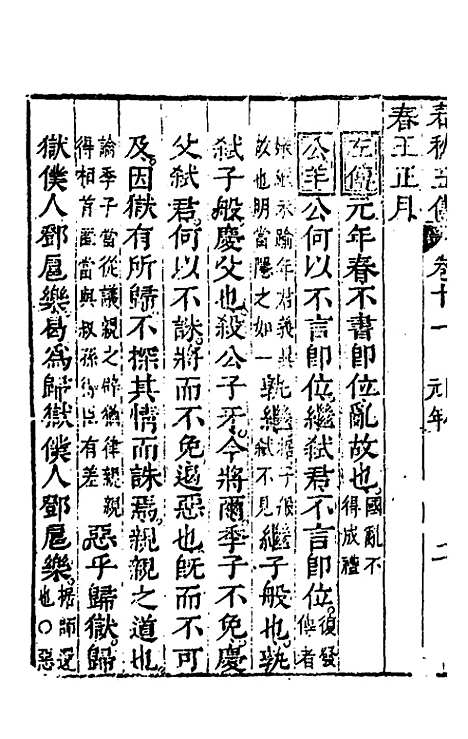 春秋五傳卷十一 元年 二
春王正月
左傳元年春不書即位亂故也國亂不得成禮
公羊公何以不言即位繼弒君不言即位復發傳者
嫌繼未踰年君義異故也明當隱之如一孰繼繼子般也孰
弒子般慶父也殺公子牙今將爾季子不免慶
父弒君何以不誅將而不免遏惡也既而不可
及因獄有所歸不探其情而誅焉親親之道也
論季子當從議親之辟猶律親親得相首匿當與叔孫得臣有差惡乎歸獄歸
獄僕人鄧扈樂曷為歸獄僕人鄧扈樂據師還也○惡